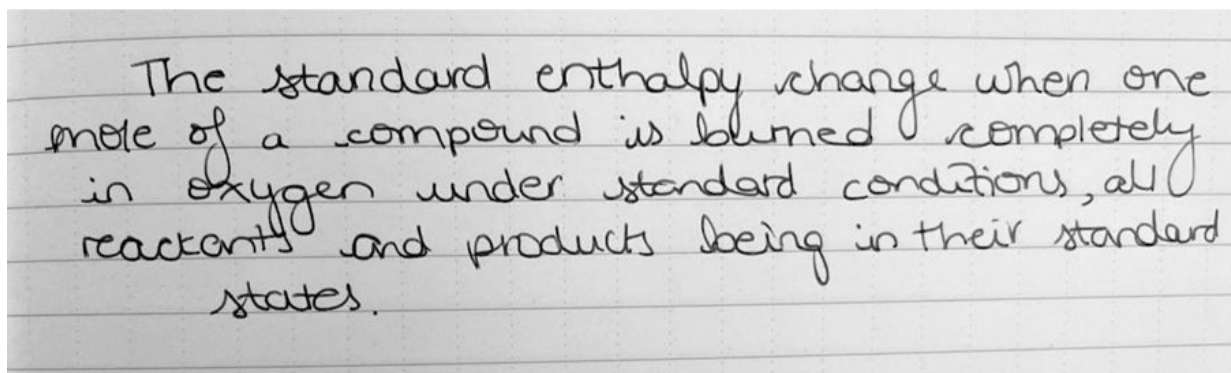 The standard enthalpy change when one
mole of a compound is burned completely
in oxygen under standard conditions, all
reactants and products being in their standard
states.